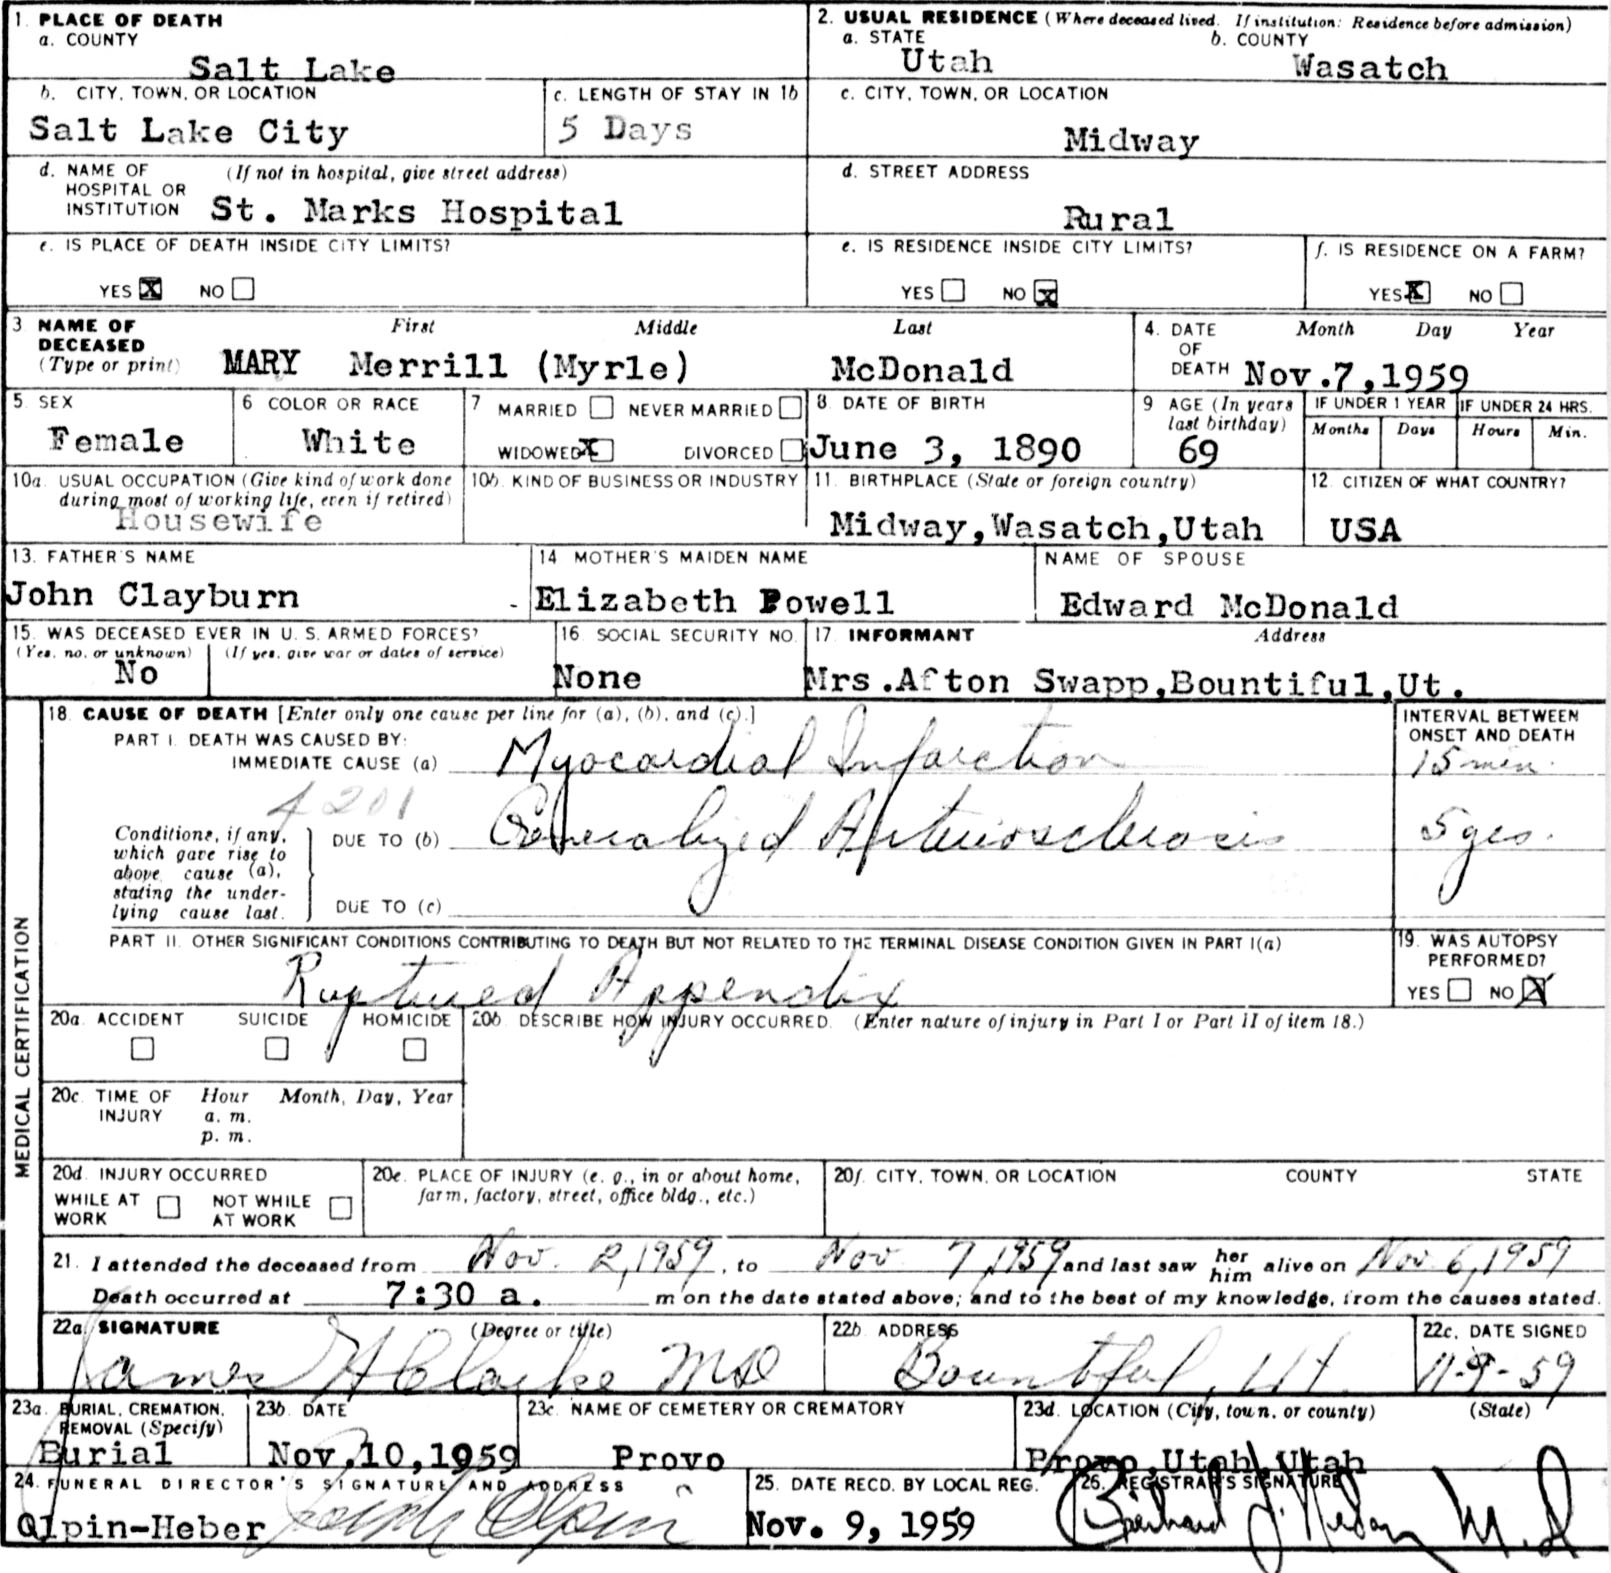 1. PLACE OF DEATH
a. COUNTY
Salt Lake
2. USUAL RESIDENCE (Where deceased lived. If institution: Residence before admission)
a. STATE
Utah
b. COUNTY
Wasatch
b. CITY, TOWN, OR LOCATION
Salt Lake City
c. LENGTH OF STAY IN 1b
5 Days
c. CITY, TOWN, OR LOCATION
Midway
d. NAME OF HOSPITAL OR INSTITUTION (If not in hospital, give street address)
St. Marks Hospital
d. STREET ADDRESS
Rural
e. IS PLACE OF DEATH INSIDE CITY LIMITS?
YES X NO
e. IS RESIDENCE INSIDE CITY LIMITS?
YES NO X
f. IS RESIDENCE ON A FARM?
YES X NO
3 NAME OF DECEASED (Type or print)
First Middle Last
MARY Merrill (Myrle) McDonald
4. DATE OF DEATH
Month Day Year
Nov.7,1959
5. SEX
Female
6 COLOR OR RACE
White
7 MARRIED NEVER MARRIED
WIDOWED X DIVORCED
8. DATE OF BIRTH
June 3, 1890
9 AGE (In years last birthday)
69
IF UNDER 1 YEAR
Months Days
IF UNDER 24 HRS.
Hours Min.
10a. USUAL OCCUPATION (Give kind of work done during most of working life, even if retired)
Housewife
10b. KIND OF BUSINESS OR INDUSTRY
11. BIRTHPLACE (State or foreign country)
Midway,Wasatch,Utah
12. CITIZEN OF WHAT COUNTRY?
USA
13. FATHER'S NAME
John Clayburn
14 MOTHER'S MAIDEN NAME
Elizabeth Powell
NAME OF SPOUSE
Edward McDonald
15. WAS DECEASED EVER IN U. S. ARMED FORCES?
(Yes, no, or unknown) (If yes, give war or dates of service)
No
16. SOCIAL SECURITY NO.
None
17. INFORMANT Address
Mrs.Afton Swapp,Bountiful,Ut.
MEDICAL CERTIFICATION
18. CAUSE OF DEATH [Enter only one cause per line for (a), (b), and (c).]
PART I. DEATH WAS CAUSED BY:
IMMEDIATE CAUSE (a) Myocardial Infarction
INTERVAL BETWEEN ONSET AND DEATH
15 min.
4201
Conditions, if any, which gave rise to above cause (a), stating the underlying cause last.
DUE TO (b) Generalized Arteriosclerosis
5 yrs.
DUE TO (c)
PART II. OTHER SIGNIFICANT CONDITIONS CONTRIBUTING TO DEATH BUT NOT RELATED TO THE TERMINAL DISEASE CONDITION GIVEN IN PART I(a)
Ruptured Appendix
19. WAS AUTOPSY PERFORMED?
YES NO X
20a. ACCIDENT SUICIDE HOMICIDE
20b. DESCRIBE HOW INJURY OCCURRED. (Enter nature of injury in Part I or Part II of item 18.)
20c. TIME OF INJURY
Hour Month, Day, Year
a. m.
p. m.
20d. INJURY OCCURRED
WHILE AT WORK NOT WHILE AT WORK
20e. PLACE OF INJURY (e. g., in or about home, farm, factory, street, office bldg., etc.)
20f. CITY, TOWN, OR LOCATION COUNTY STATE
21. I attended the deceased from Nov. 2,1959, to Nov 7,1959 and last saw her him alive on Nov. 6,1959
Death occurred at 7:30 a. m on the date stated above; and to the best of my knowledge, from the causes stated.
22a. SIGNATURE (Degree or title)
James H Clarke MD
22b. ADDRESS
Bountiful, Ut.
22c. DATE SIGNED
11-9-59
23a. BURIAL, CREMATION, REMOVAL (Specify)
Burial
23b. DATE
Nov.10,1959
23c. NAME OF CEMETERY OR CREMATORY
Provo
23d. LOCATION (City, town, or county) (State)
Provo,Utah,Utah
24. FUNERAL DIRECTOR'S SIGNATURE AND ADDRESS
Olpin-Heber
Olpin
25. DATE RECD. BY LOCAL REG.
Nov. 9, 1959
26. REGISTRAR'S SIGNATURE
M.D